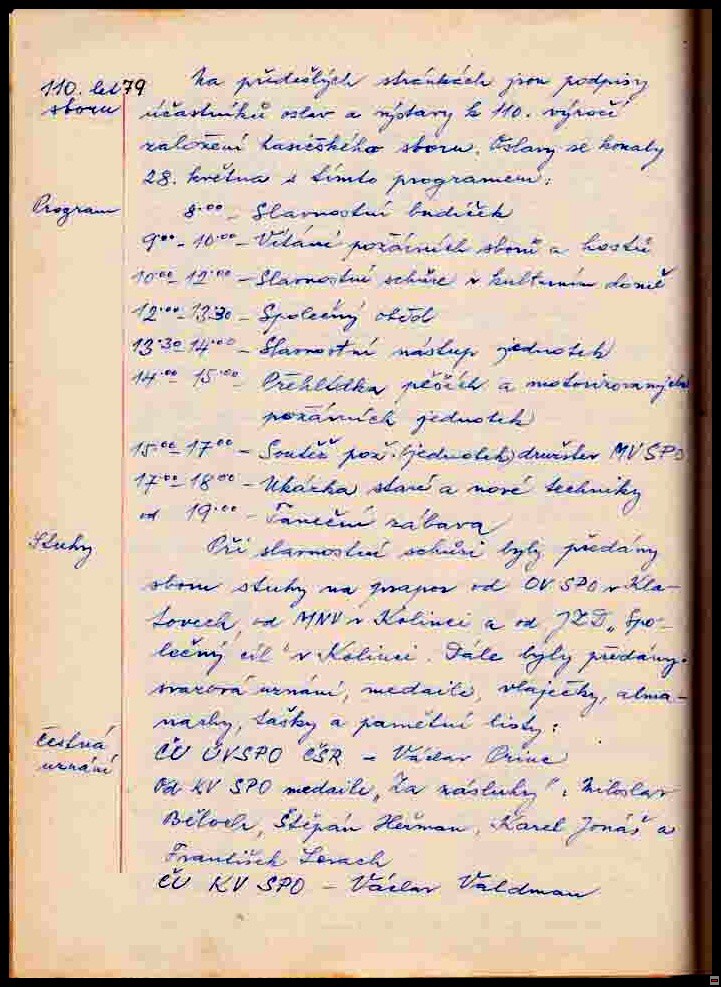 110. let 79
sboru
Na předešlých stránkách jsou podpisy
účastníků oslav a výstavy k 110. výročí
založení hasičského sboru. Oslavy se konaly
28. května s tímto programem:
Program
8.00 – Slavnostní budíček
9.00 – 10.00 – Vítání požárních sborů a hostů
10.00 – 12.00 – Slavnostní schůze v kulturním domě
12.00 – 13.30 – Společný oběd
13.30 – 14.00 – Slavnostní nástup jednotek
14.00 – 15.00 – Přehlídka pěších a motorizovaných
požárních jednotek
15.00 – 17.00 – Soutěž pož. (jednotek) družstev MVSPO
17.00 – 18.00 – Ukázka staré a nové techniky
od 19.00 – Taneční zábava
Stuhy
Při slavnostní schůzi byly předány
sboru stuhy na prapor od OV SPO v Kla-
tovech, od MNV v Kolinci a od JZD „Spo-
lečný cíl" v Kolinci. Dále byly předány
svazová uznání, medaile, vlaječky, alma-
nachy, tašky a pamětní listy:
Čestná
uznání
ČU ÚVSPO ČSR – Václav Princ
Od KV SPO medaile „Za zásluhy": Miloslav
Běloch, Štěpán Heřman, Karel Jonáš a
František
ČU KV SPO – Václav Valdman